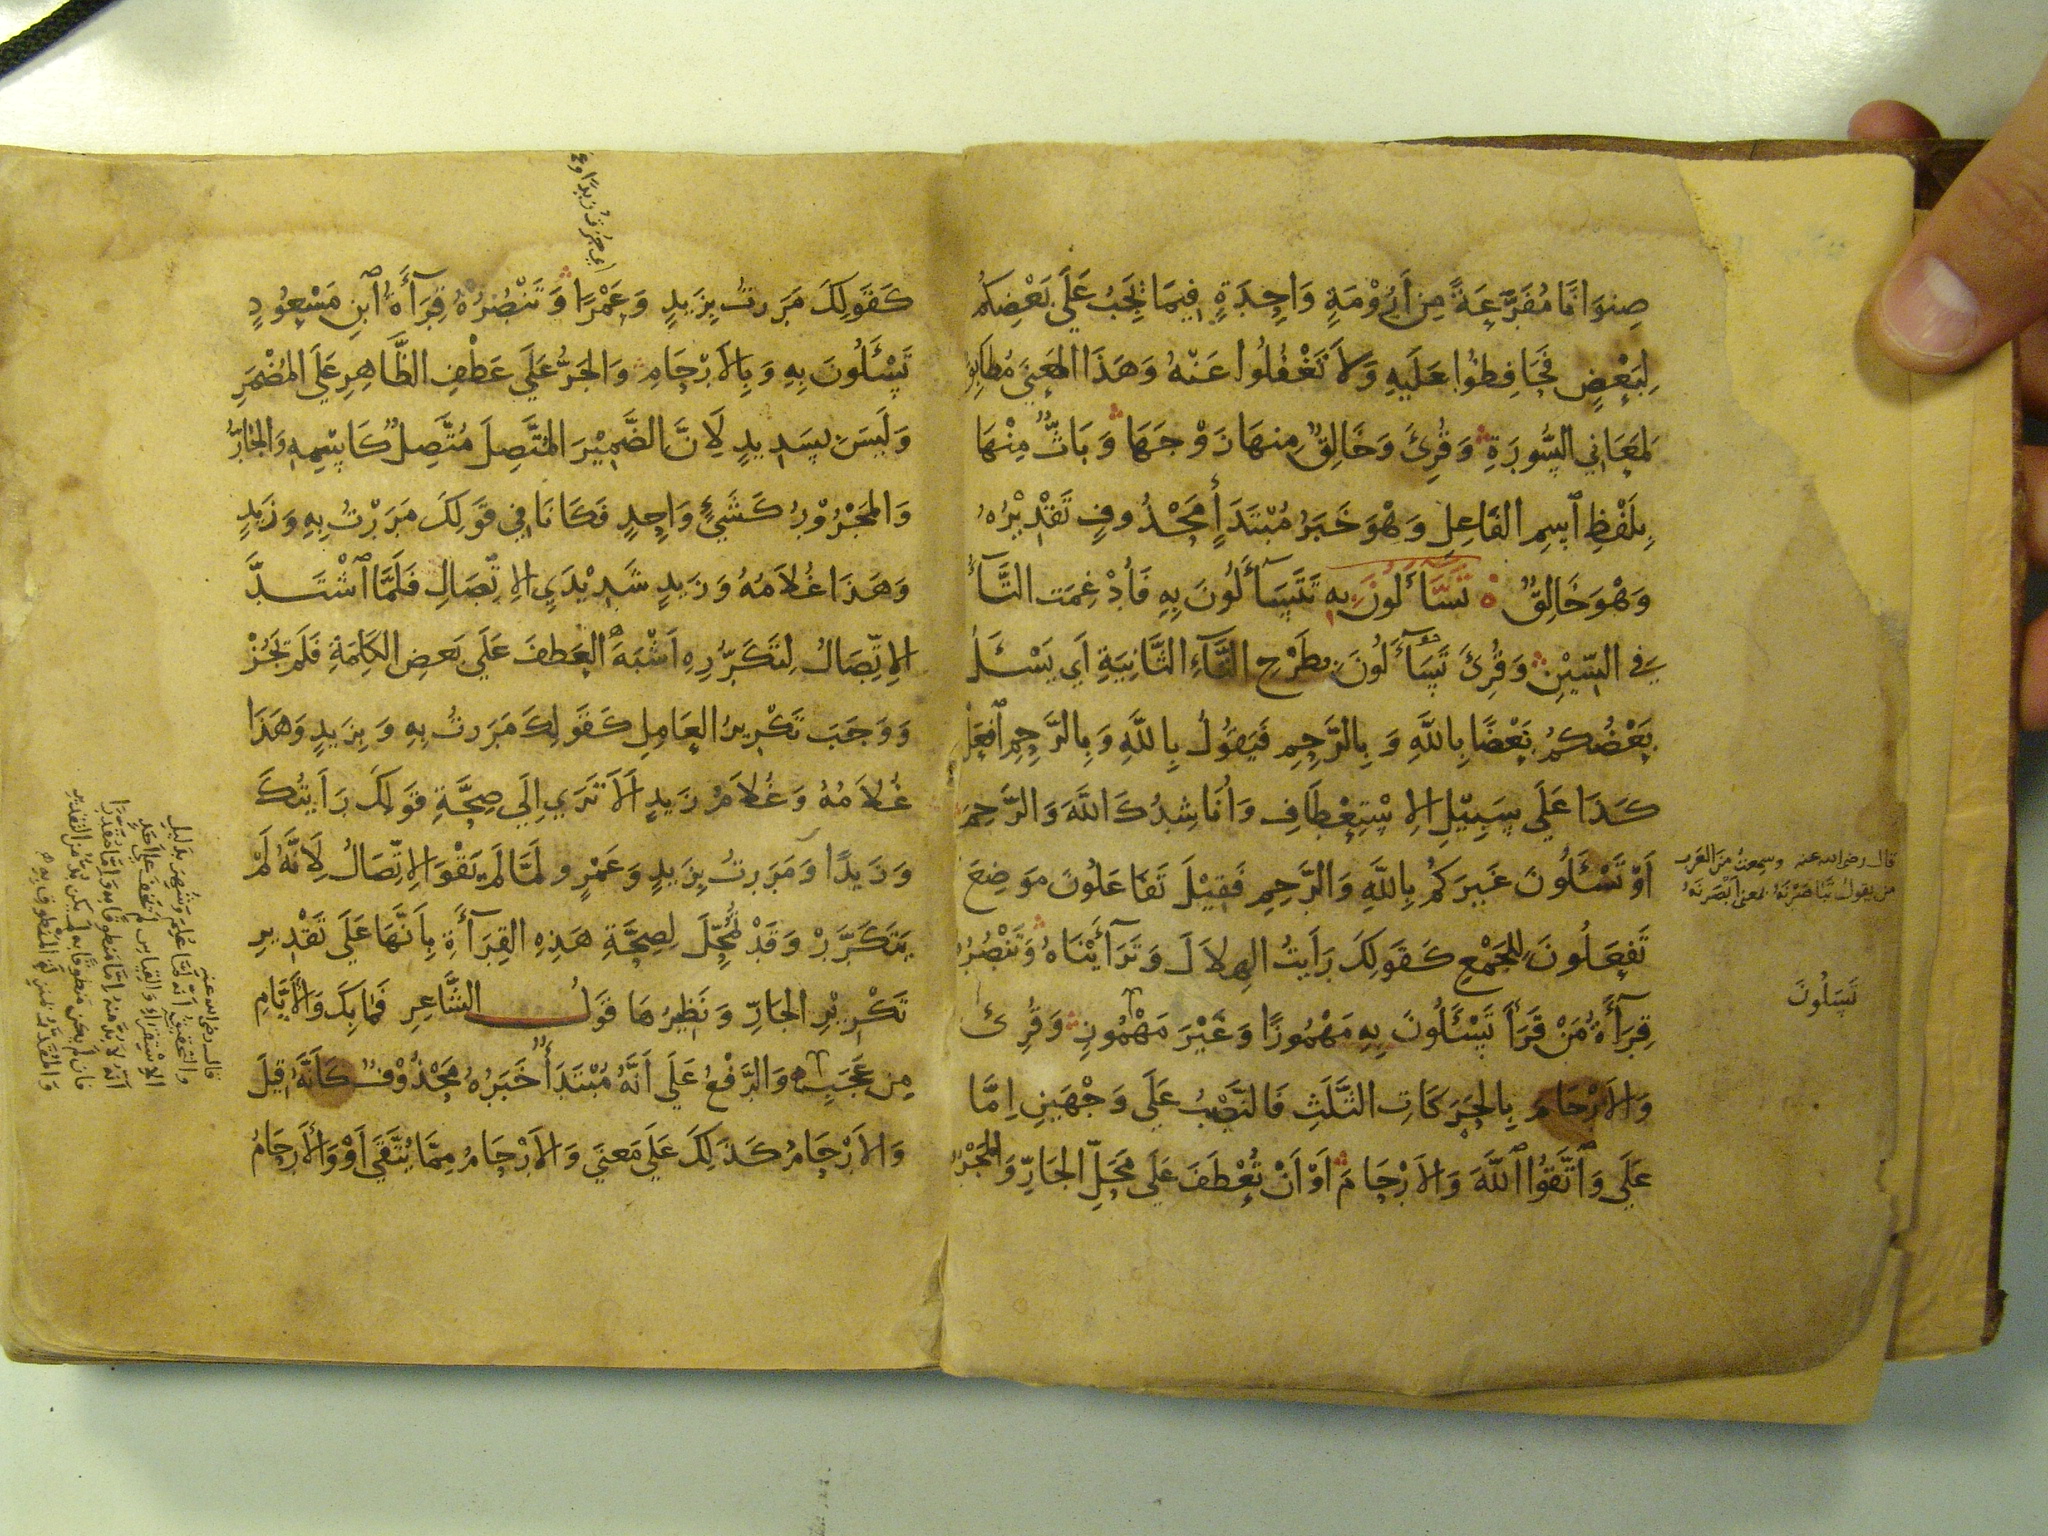 صِنوَانًا مُفَرَّعَةً مِن اَرُوْمَةٍ وَاحِدَةٍ فِيمَا يَجِبُ عَلَى بَعْضِكُمْ
لِبَعْضٍ فَحَافِظُوا عَلَيهِ وَلاَ تَغْفُلُوا عَنْهُ وَهَذَا المَعنَى مُطَابِقٌ
لِمَعَانِي السُّورَةِ وَقُرِئَ وَخَالِقٌ مِنهَا زَوْجَهَا وَبَاثٌّ مِنْهَا
بِلَفْظِ ٱسِمِ الفَاعِلِ وَهْوَ خَبَرُ مُبْتَدَأٍ مَحْذُوفٍ تَقْدِيْرُهُ
وَهْوَ خَالِقٌ ه تَسَّآءَلُونَ بِهِ تَتَسَآءَلُونَ بِهِ فَاُدْغِمَتِ التَّآءُ
فِي السِّيْنِ وَقُرِئَ تَسَآءَلُونَ بِطَرْحِ التَّآءِ الثَّانِيَةِ اَي يَسْئَلُ
بَعْضُكُمْ بَعْضًا بِاللَّهِ وَبِالرَّحِمِ فَيَقُوْلُ بِاللَّهِ وَبِالرَّحِمِ ٱفْعَلْ
كَذَا عَلَى سَبِيْلِ الاِسْتِعْطَافِ وَاُنَاشِدُكَ اللَّهَ وَالرَّحِمَ
اَوْ تَسْئَلُونَ غَيرَكُمْ بِاللَّهِ وَالرَّحِمِ فَقِيْلَ تَفَاعَلُونَ مَوْضِعَ
تَفْعَلُونَ لِلجَمْعِ كَقَولِكَ رَاَيتُ الهِلاَلَ وَتَرَآءَيْنَاهُ وَتَنْصُرُهُ
قِرَآءَةُ مَنْ قَرَاَ تَسْئَلُونَ بِهِ مَهْمُوزًا وَغَيْرَ مَهْمُوزٍ وَقُرِئَ
وَالاَرْحَامَ بِالحَرَكَاتِ الثَّلَثِ فَالنَّصْبُ عَلَى وَجْهَينِ اِمَّا
عَلَى وَٱتَّقُوا ٱللَّهَ وَالاَرْحَامَ اَوْ اَنْ تُعْطَفَ عَلَى مَحَلِّ الجَارِّ وَالمَجْرُورِ
قال رضي الله عنه وسمعتُ من العَرب
من يقول تباصَرْتُه بمعنى اَبْصَرتُهُ
تَسَلُونَ
اي جُزتُ زيدًا و
كَقَولِكَ مَرَرتُ بِزَيدٍ وَعَمْرًا وَتَنْصُرُهُ قِرَآءَةُ ٱبنِ مَسْعُودٍ
تَسْئَلُونَ بِهِ وَبِالاَرْحَامِ وَالجَرُّ عَلَى عَطْفِ الظَّاهِرِ عَلَى المُضْمَرِ
وَلَيسَ بِسَدِيدٍ لِاَنَّ الضَّمِيْرَ المُتَّصِلَ مُتَّصِلٌ كَاسْمِهِ وَالجَارُّ
وَالمَجْرُوْرُ كَشَيْءٍ وَاحِدٍ فَكَانَا فِي قَولِكَ مَرَرْتُ بِهِ وَزَيدٍ
وَهَذَا غُلاَمُهُ وَزَيدٍ شَدِيْدَيِ الاِتِّصَالِ فَلَمَّا ٱشْتَدَّ
الاِتِّصَالُ لِتَكَرُّرِهِ اَشْبَهَ العَطفَ عَلَى بَعضِ الكَلِمَةِ فَلَم يَجُزْ
وَوَجَبَ تَكْرِيرُ العَامِلِ كَقَولِكَ مَرَرتُ بِهِ وَبِزَيدٍ وَهَذَا
غُلاَمُهُ وَغُلاَمُ زَيدٍ اَلاَ تَرَي اِلَى صِحَّةِ قَولِكَ رَاَيتُكَ
وَزَيدًا وَمَرَرتُ بِزَيدٍ وَعَمْرٍو لَمَّا لَم يَقْوَ الاِتِّصَالُ لِاَنَّهُ لَمْ
يَتَكَرَّرْ وَقَدْ تُمُحِّلَ لِصِحَّةِ هَذِهِ القِرَآءَةِ بِاَنَّهَا عَلَى تَقْدِيرِ
تَكْرِيْرِ الجَارِّ وَنَظِيْرُهَا قَولُ الشَّاعِرِ فَمَا بِكَ وَالاَيَّامِ
مِن عَجَبِ ه وَالرَّفْعُ عَلَى اَنَّهُ مُبْتَدَأٌ خَبَرُهُ مَحْذُوْفٌ كَاَنَّهُ قِيلَ
وَالاَرْحَامُ كَذَلِكَ عَلَى مَعنَى وَالاَرْحَامُ مِمَّا يُتَّقَى اَوْ وَالاَرحَامُ
قال رضي الله عنه